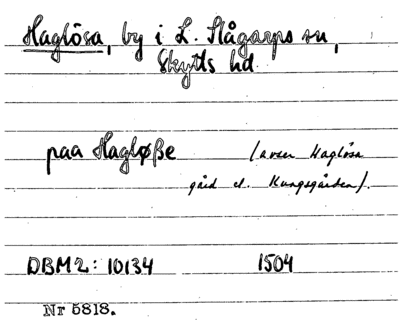 Haglösa, by i L. Slågarps sn,
Skytts hd
paa Hagløße (avser Haglösa
gård el. Kungsgården).
DBM2: 10134 1504
Nr 5818.